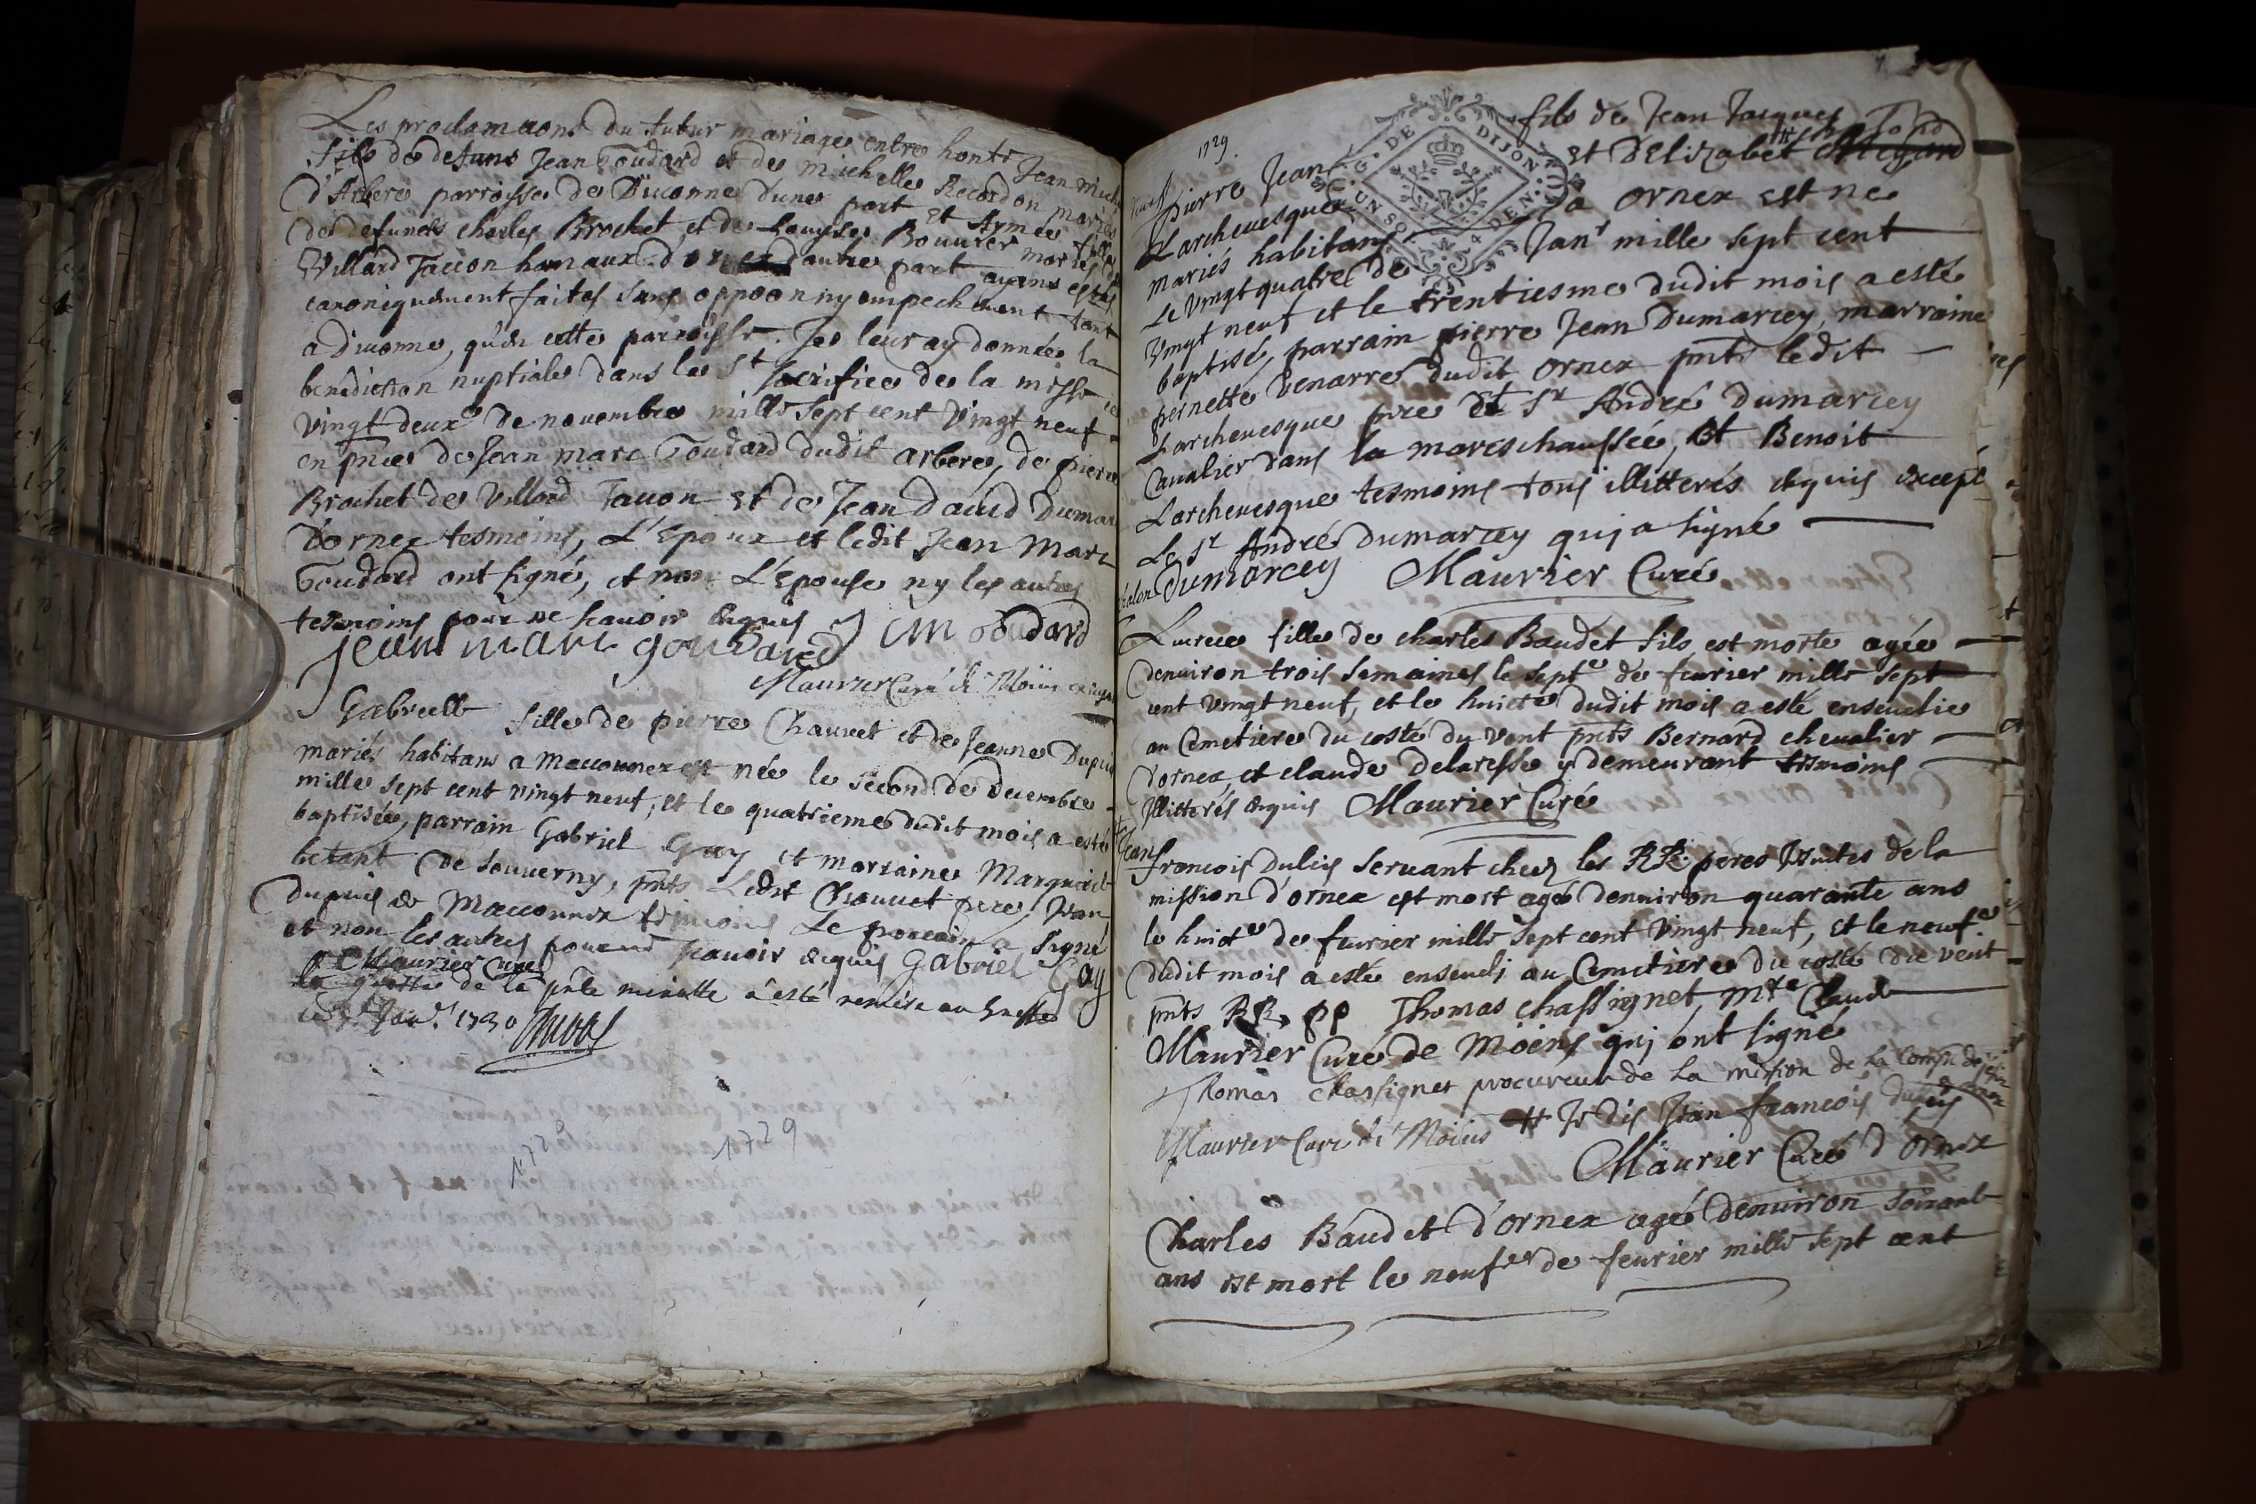 Les proclamaons du futur mariage entre honte Jean Mich
fils de defuns Jean Goudard et de Michelle Recordon mariés
d'Arbere parroisse de Diuonne d'une part et Aymée fille
de defuncts charles Brochet, et de Louyse Bouurer mariés de
Villard Taccon hameaux d'ornex d'autre part ayans estés
canoniquement faites sans oppoon ny empechement tant
a Diuonne, qu'en cette parroisse. Je leur ay donnée la
benediction nuptiale dans le St sacrifice de la messe ce
vingt deuxe de nouembre mille sept cent vingt neuf
en pnce de Jean marc Goudard dudit arbere, de pierre
Brochet de Villard Tacon et de Jean Dauid Dumar
d'ornex tesmoins, L'Epoux et ledit Jean Marc
Goudard ont signé, et non L'Epouse ny les autres
tesmoins pour ne scauoir enquis
jean marc goudard J m goudard
Maurier Curé de Moïns
Gabrielle fille de pierre Chauuet et de Jeanne Dupuis
mariés habitans a Macconnex est née le second de decembre
mille sept cent vingt neuf, et le quatrieme dudit mois a esté
baptisée, parrain Gabriel Gay et marraine Marguerit
betant de Sauuerny, pnts Ledit Chauuet pere, Jean
dupuis de Macconnex tesmoins Le parrain a signé
et non les autres pour ne scauoir enquis Gabriel Gay
Maurier Curé
la grosse de la pnte minutte a esté remise au Greffe
Janr. 1730
1729
1729
1729.
Pierre Jean fils de Jean Jacques
Larcheuesque et D'Elizabet
mariés habitans a ornex est né
Le vingt quatre de Janr mille sept cent
vingt neuf et le trentiesme dudit mois a esté
baptisé, parrain pierre Jean Dumarcey, marraine
pernette Venarre dudit ornex pnts ledit
Larcheuesque pere et Sr André Dumarcey
Caualier dans la mareschaussée, Et Benoit
Larcheuesque tesmoins tous illitterés enquis excepté
Le Sr André Dumarcey quj a signé
Dumarcey Maurier Curé
Lucrece fille de charles Baudet fils, est morte agée
d'enuiron trois semaines le septe de feurier mille sept
cent vingt neuf, et le huicte dudit mois a esté enseuelie
au Cemetiere du costé du vent pnts Bernard cheualier
d'ornex et claude delaresse y demeurant tesmoins
Illitterés enquis Maurier Curé
Jean
francois Dulcis seruant chez les RR. peres Jesuites de la
mission d'ornex est mort agé d'enuiron quarante ans
le huicte de feurier mille sept cent vingt neuf, et le neufe
dudit mois a esté enseueli au Cemetiere du costé du vent
pnts RR. pp Thomas chassignet, mre Claude
Maurier Curé de Moëns quj ont signé
Thomas Chassignet procureur de la mission de la Comp. de jesus
Maurier Curé de Moïns # Je dis Jean francois Dulcis
Maurier Curé d'ornex
Charles Baudet d'ornex agé d'enuiron soixante
ans est mort le neufe de feurier mille sept cent